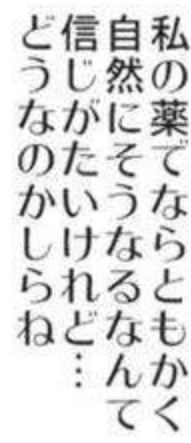 私の薬でならともかく
自然にそうなるなんて
信じがたいけれど…
どうなのかしらね